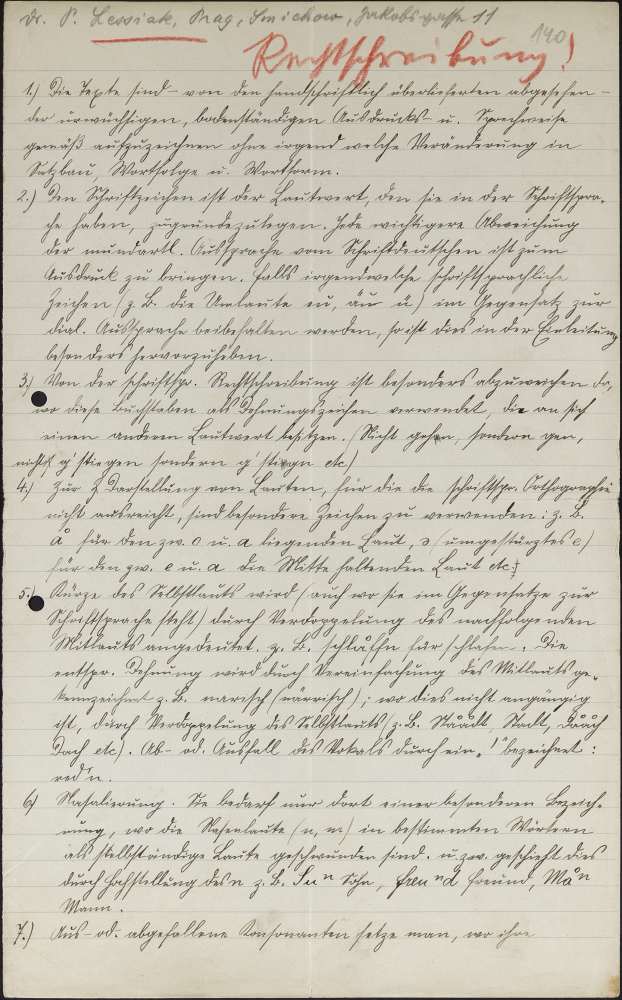 Dr. P. Lessiak, Prag, Smichow, Jakobsgasse 11
140
Rechtschreibung!
1.) Die Texte sind – von den handschriftlich überlieferten abgesehen –
der urwüchsigen, bodenständigen Ausdrucks- u. Sprechweise
gemäß aufzuzeichnen ohne irgend welche Veränderung in
Satzbau, Wortfolge u. Wortform.
2.) Den Schriftzeichen ist der Lautwert, den sie in der Schriftspra-
che haben, zugrundezulegen. Jede wichtigere Abweichung
der mundartl. Aussprache vom Schriftdeutschen ist zum
Ausdruck zu bringen. Falls irgendwelche schriftsprachliche
Zeichen (z. B. die Umlaute eu, äu ü) im Gegensatz zur
dial. Aussprache beibehalten werden, so ist dies in der Einleitung
besonders hervorzuheben.
3.) Von der schriftspr. Rechtschreibung ist besonders abzuweichen da,
wo diese Buchstaben als Dehnungszeichen verwendet, die an sich
einen anderen Lautwert besitzen. (Nicht gehen, sondern gen,
nicht g'stiegen sondern g'stign etc)
4.) Zur Darstellung von Lauten, für die die schriftspr. Orthographie
nicht ausreicht, sind besondere Zeichen zu verwenden: z. B.
å für den zw. o u. a liegenden Laut, ə (umgestürztes e)
für den zw. e u. a die Mitte haltenden Laut etc.
5.) Kürze des Selbstlauts wird (auch wo sie im Gegensatze zur
Schriftsprache steht) durch Verdoppelung des nachfolgenden
Mitlauts angedeutet. z. B. schlåffn für schlafen. Die
entspr. Dehnung wird durch Vereinfachung des Mitlauts ge-
kennzeichnet z. B. narisch (närrisch); wo dies nicht angängig
ist, durch Verdoppelung des Selbstlauts (z. B. Ståådt, Stadt, Dååch
Dach etc). Ab- od. Ausfall des Vokals durch ein „'" bezeichnet:
red'n.
6) Nasalierung. Sie bedarf nur dort einer besonderen Bezeich-
nung, wo die Nasenlaute (n, m) in bestimmten Wörtern
als selbständige Laute geschwunden sind. u. zw. geschieht dies
durch Hochstellung des n z. B. Suⁿ Sohn, freuⁿd Freund, Måⁿ
Mann.
7.) Aus- od. abgefallene Konsonanten setze man, wo ihre